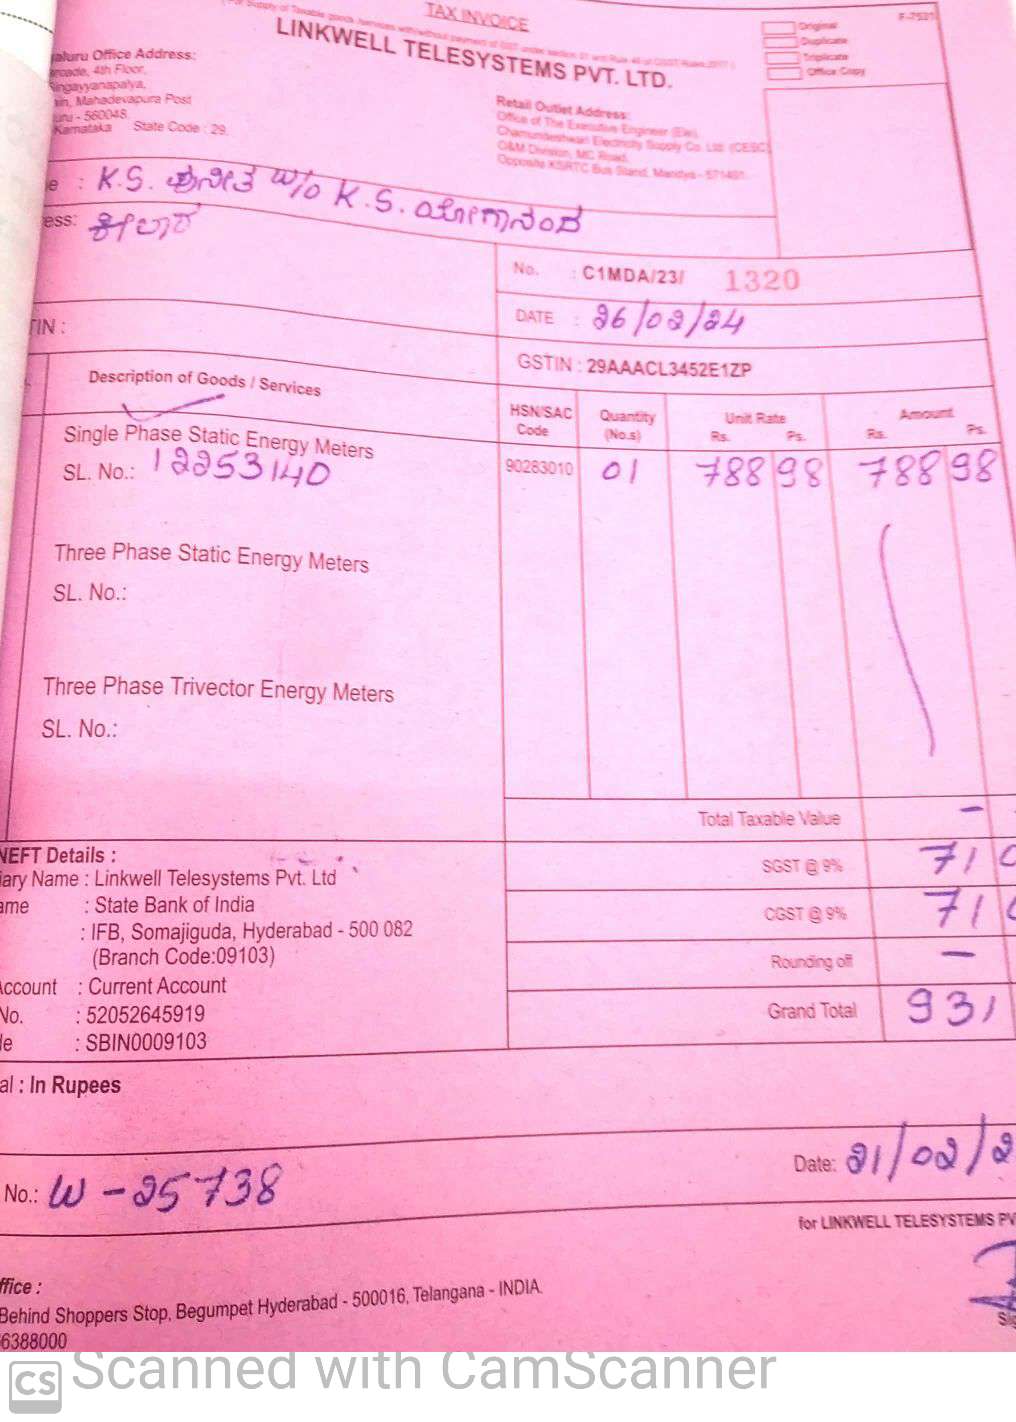 TAX INVOICE
LINKWELL TELESYSTEMS PVT. LTD.
F-7531
Original
Duplicate
Triplicate
Office Copy
aluru Office Address:
4th Floor,
ingayyanapalya,
in, Mahadevapura Post
uru - 560048,
Karnataka State Code : 29.
Retail Outlet Address:
Office of The Executive Engineer (Ele),
Chamundeshwari Electricity Supply Co. Ltd. (CESC)
O&M Division, MC Road,
Opposite KSRTC Bus Stand, Mandya - 571401.
e : K.S. ಪುನೀತ W/o K.S. ಯೋಗಾನಂದ
ess: ಕೀಲಾರ
No. : C1MDA/23/ 1320
DATE : 26/02/24
TIN :
GSTIN : 29AAACL3452E1ZP
Description of Goods / Services
HSN/SAC Code
Quantity (No.s)
Unit Rate
Rs. Ps.
Amount
Rs. Ps.
Single Phase Static Energy Meters
SL. No.: 12253140 90283010 01 788 98 788 98
Three Phase Static Energy Meters
SL. No.:
Three Phase Trivector Energy Meters
SL. No.:
Total Taxable Value -
SGST @ 9% 71 0
CGST @ 9% 71 0
Rounding off -
Grand Total 931
NEFT Details :
iary Name : Linkwell Telesystems Pvt. Ltd
ame : State Bank of India
: IFB, Somajiguda, Hyderabad - 500 082
(Branch Code:09103)
Account : Current Account
No. : 52052645919
de : SBIN0009103
al : In Rupees
No.: W - 25738
Date: 21/02/2
for LINKWELL TELESYSTEMS PV
ffice :
Behind Shoppers Stop, Begumpet Hyderabad - 500016, Telangana - INDIA.
6388000
CS Scanned with CamScanner